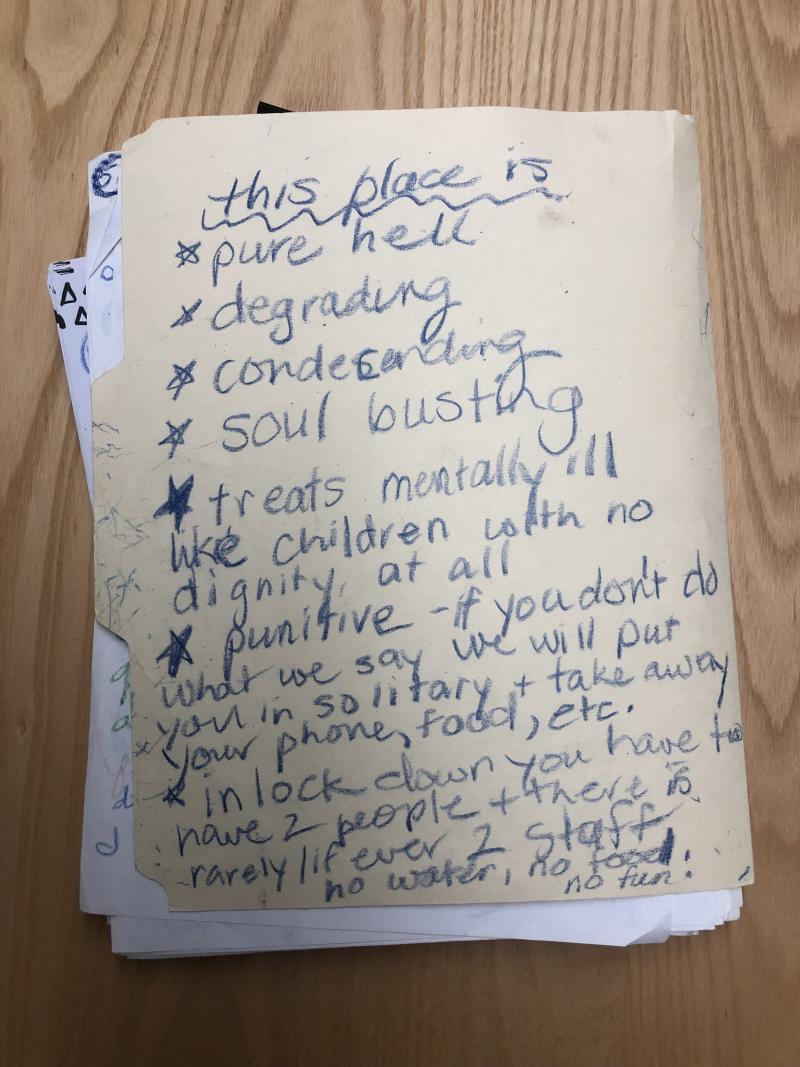 this place is
pure hell
degrading
condesending
soul busting
treats mentally ill
like children with no
dignity, at all
punitive - if you don't do
what we say we will put
you in solitary + take away
your phone, food, etc.
in lock down you have to
have 2 people + there is
rarely/if ever 2 staff
no water, no food!
no fun!